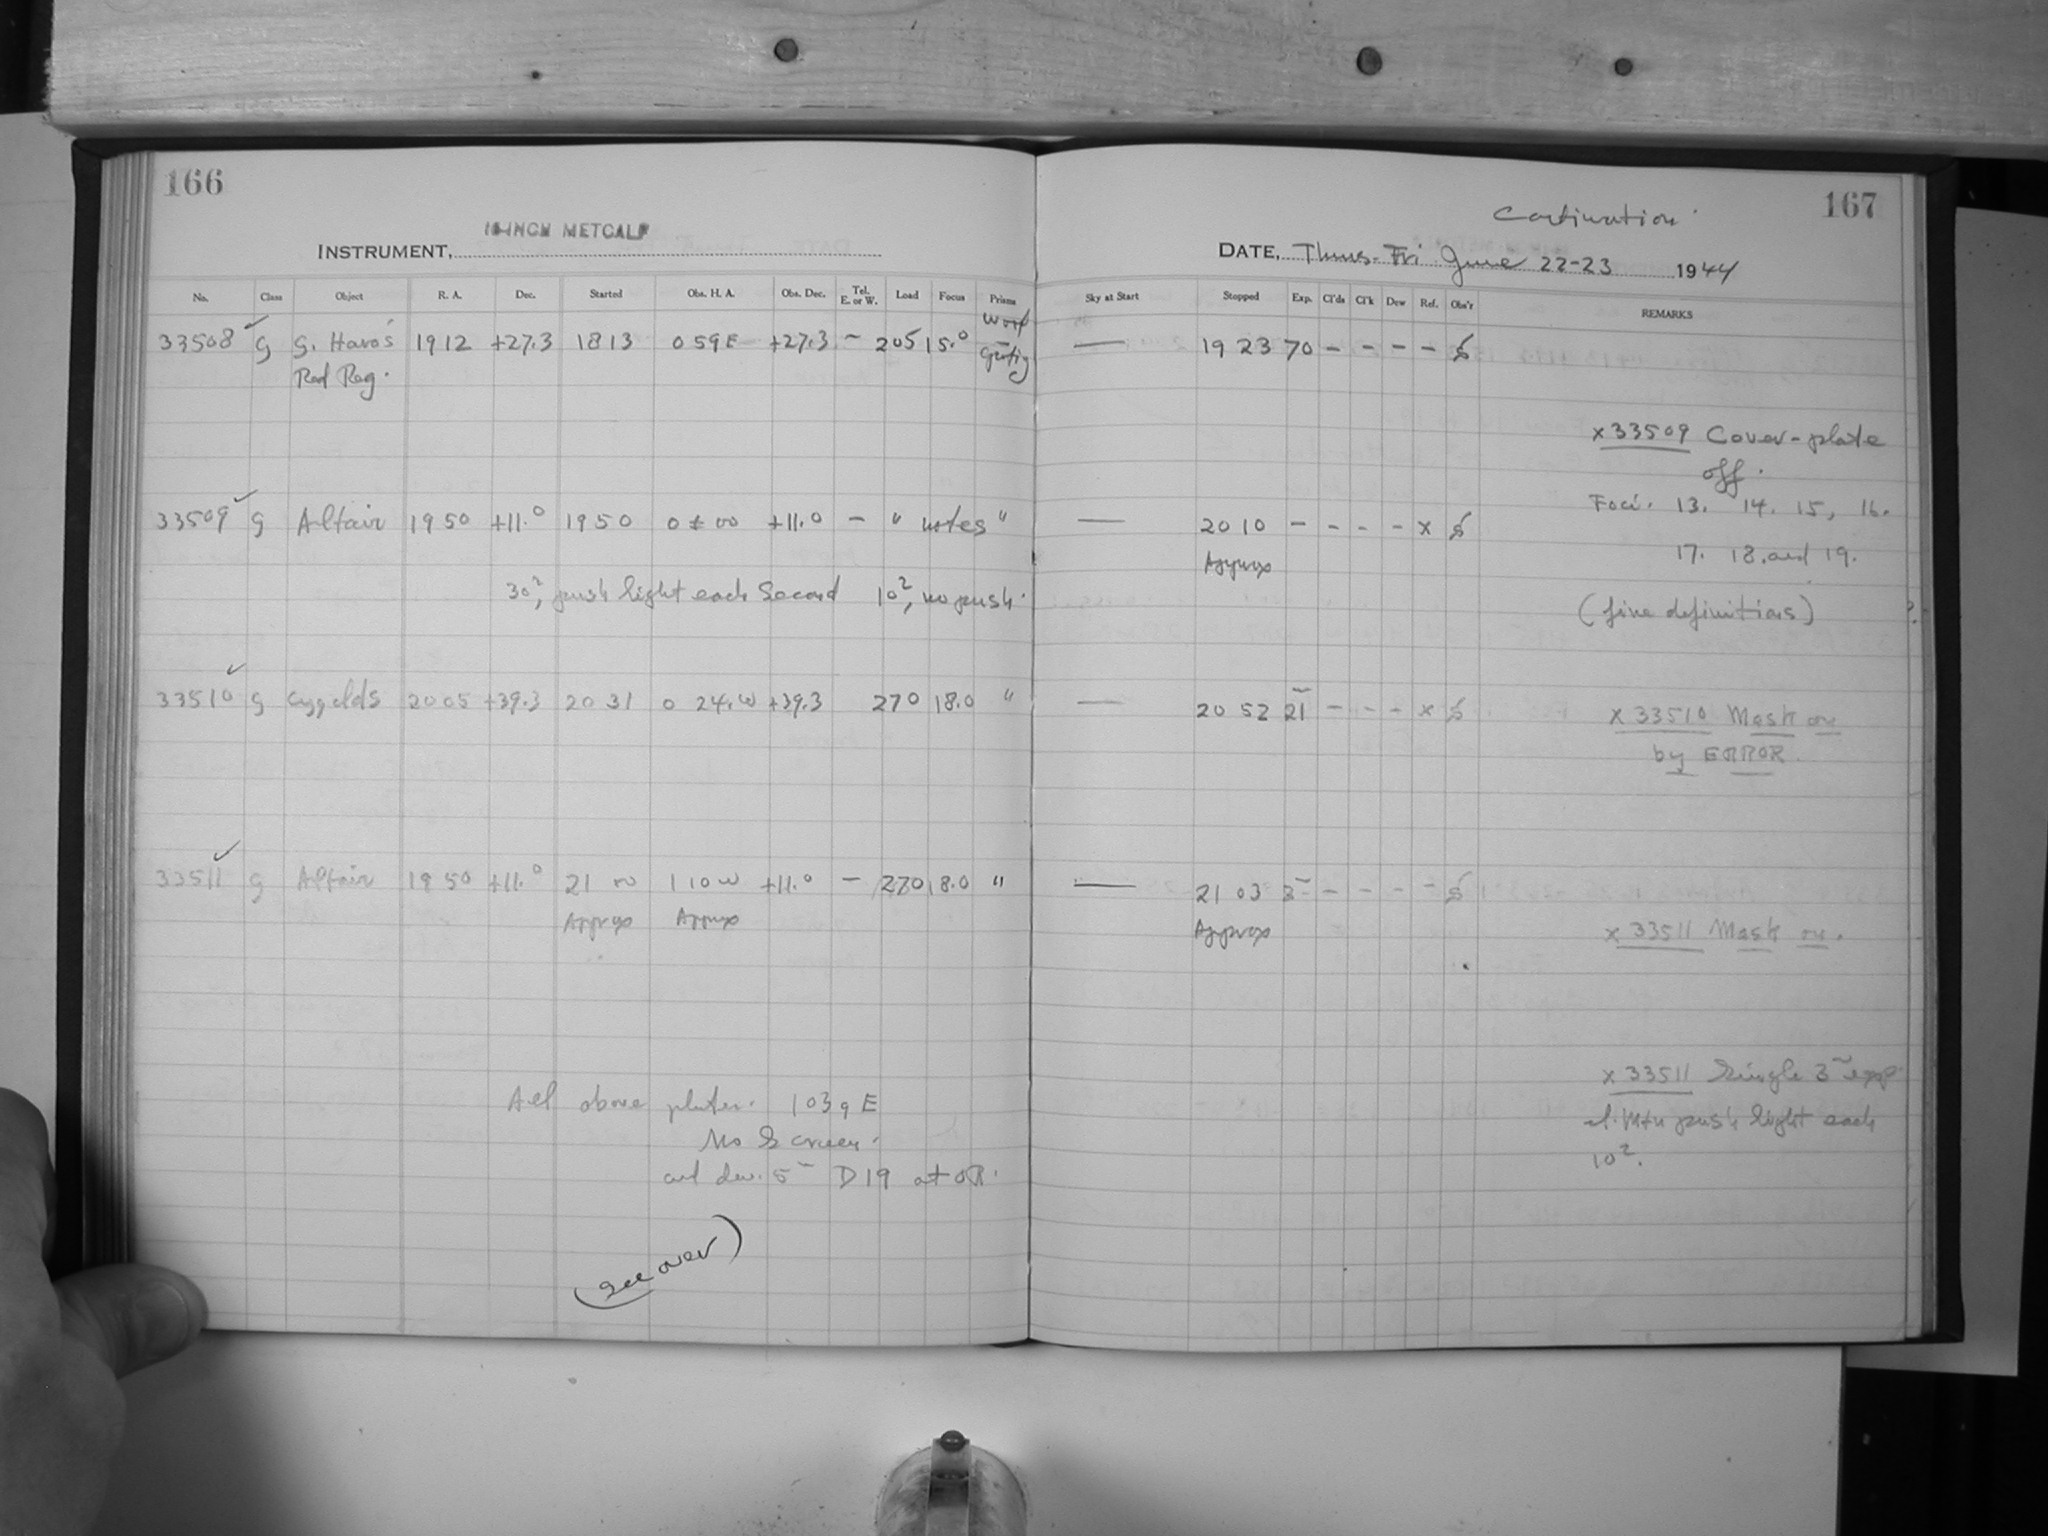 166
16-INCH METCALF
INSTRUMENT,
No. Class Object R. A. Dec. Started Obs. H. A. Obs. Dec. Tel. E. or W. Load Focus Prisms
33508 G G. Haro's 1912 +27.3 1813 0 59 E +27.3 - 205 15.0
Red Reg.
33509 G Altair 19 50 +11.0 19 50 0 ± 00 +11.0 - " notes "
30s, push light each second 10s, no push.
33510 G Cyg clds 20 05 +39.3 20 31 0 24.W +39.3 270 18.0 "
33511 G Altair 19 50 +11.0 21 00 1 10 W +11.0 - 270 18.0 "
Approx Approx
All above plates. 103 a E
No Screen.
and dev. 5m D19 at
(see over)
Continuation
167
DATE, Thurs-Fri June 22-23 1944
Sky at Start Stopped Exp. Cl'ds Cl'k Dew Ref. Obs'r REMARKS
— 19 23 70 - - - -
x 33509 Cover-plate
off.
Foci. 13. 14. 15, 16.
— 20 10 - - - - x
Approx
17. 18. and 19.
(fine definitions) ?
— 20 52 21 - - - x
x 33510 Mask on
by ERROR.
— 21 03 3 - - - -
Approx
x 33511 Mask on.
x 33511 Single 3m exp
push light each
10s.